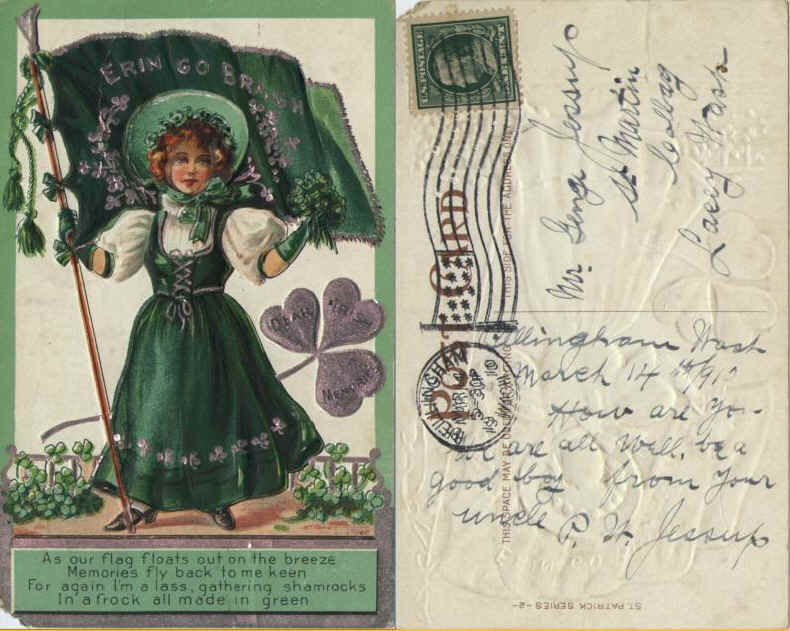 ERIN GO BRAGH
DEAR
MEMORIES
As our flag floats out on the breeze
Memories fly back to me keen
For again I'm a lass, gathering shamrocks
In a frock all made in green
U.S. POSTAGE
POST CARD
THIS SIDE FOR THE ADDRESS
THIS SPACE MAY BE USED FOR
BELLINGHAM
WASH.
MAR 14
5-30P
1910
Mr. George Jessup
St Martin
Colleg
Lacey Wash
Bellingham Wash
March 14th/910
How are you
We are all Well, be a
good boy from your
uncle
P. H. Jessup
ST. PATRICK SERIES-2-